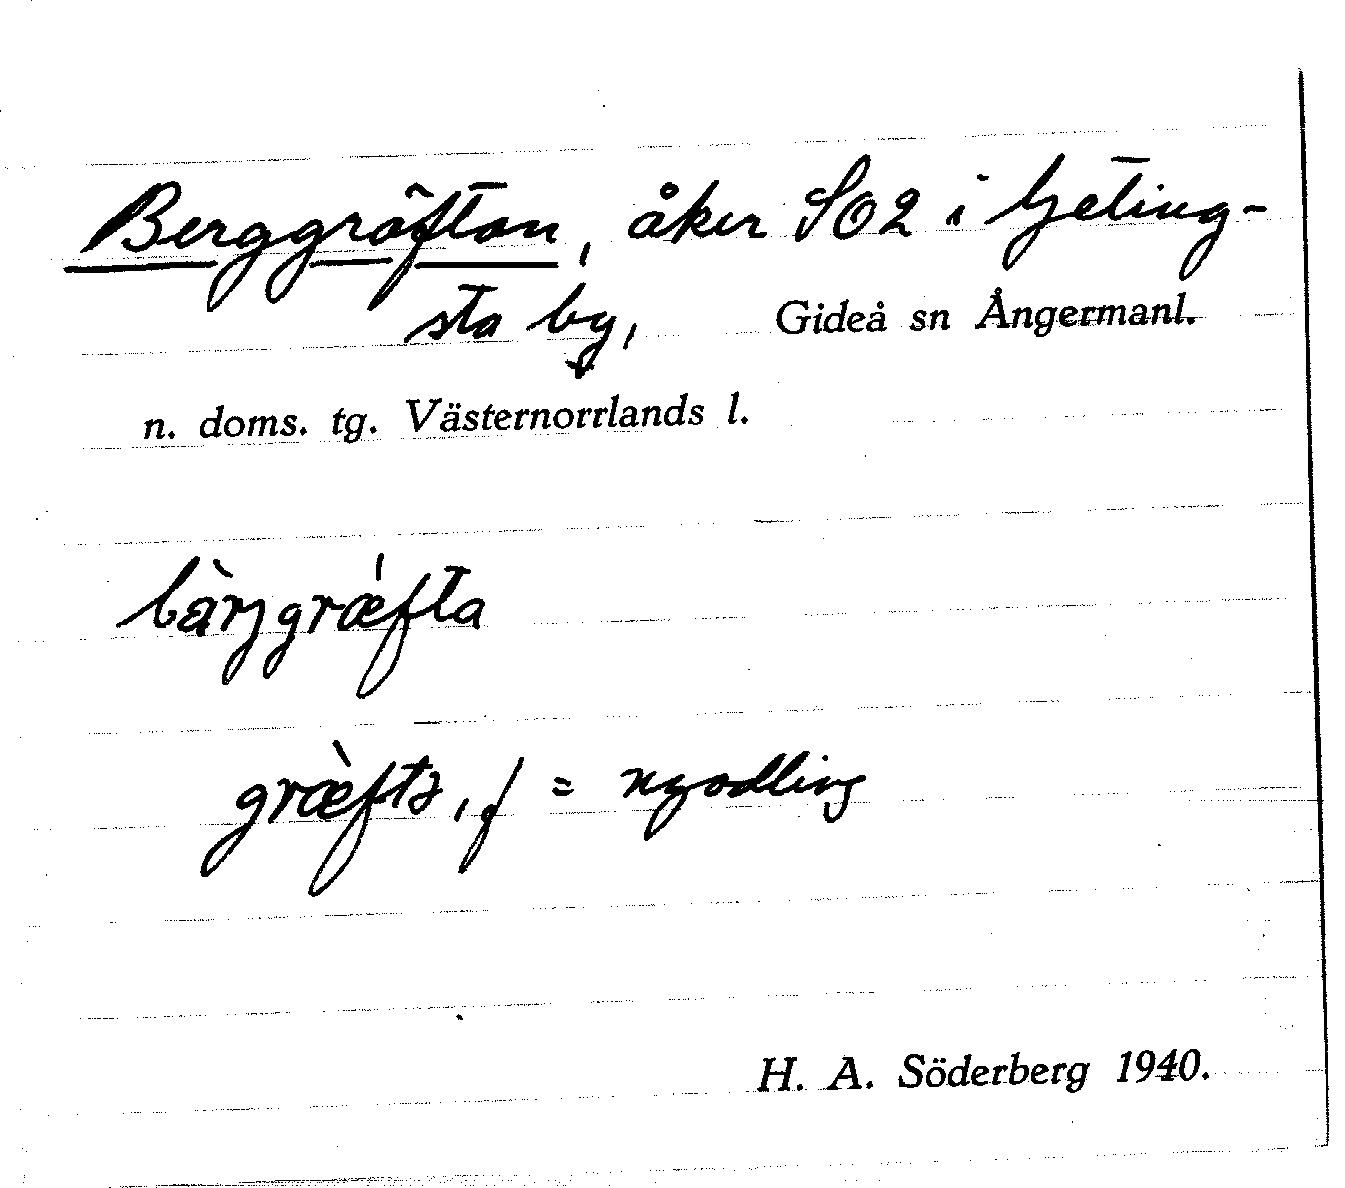 Berggräftan, åker SO2 i Geting-
sta by, Gideå sn Ångermanl.
n. doms. tg. Västernorrlands l.
bàrjgræ´fta
græ̀ftə, f = nyodling
H. A. Söderberg 1940.